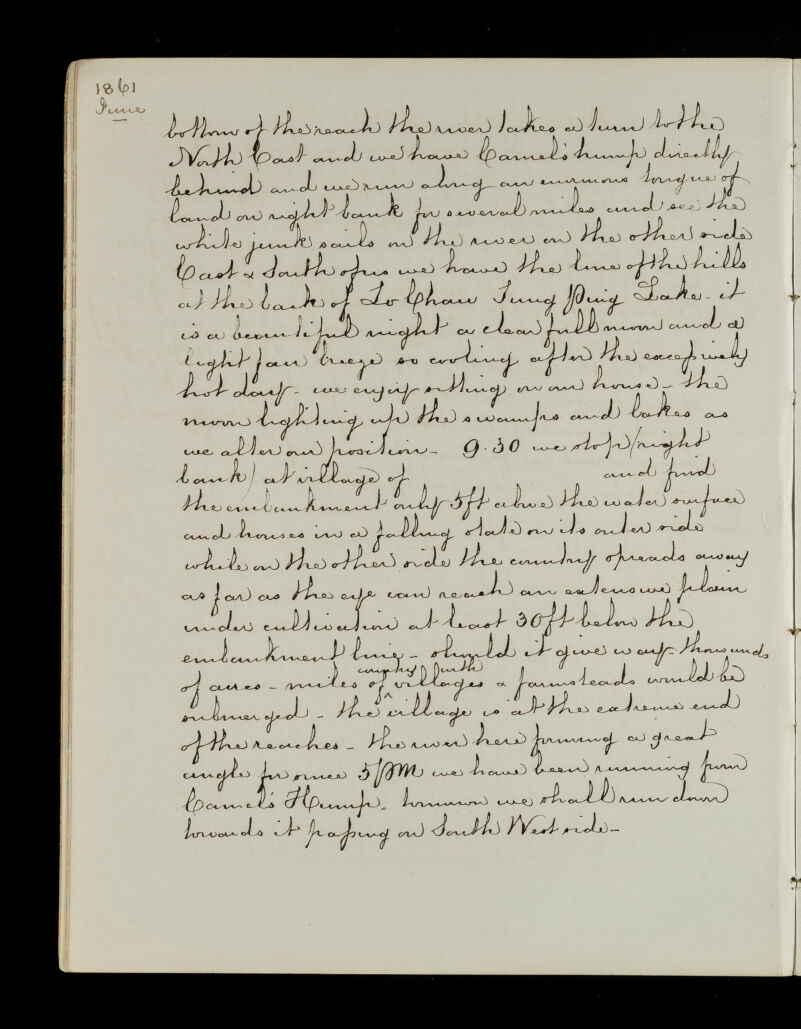 1861
June
bottom of the reach the river takes a turn to the
North East and we have Camel's hump directly
behind and we run along an enormous tongue of
land on right bank for several miles and see the
white junk sails on the river on the other side
East & South of us we have the line of the hills
at the back of Lo Chau Tung Ping Lake - it
is a beautiful night a clear full moon and a
light fair breeze so cooling after the excessively
hot day - we enjoy sitting on our house - the
moon lighting up the swamps and lakes as
we alter our position - 9.30 we stop (right
bank) at village of and find
the embankment only 5ft above the water surface
and houses in a falling state on its outer side
while on the other side the country spreads away
as far as the eye can reach an extensive plain
under cultivation at least 30ft below the
embankment line - should it give way - thousands
of acres - miles of country with villages & farmsteads would be
submerged - the village is at the extreme end
of the reaches - the river here forming a great
angle for since 5 PM we have been running from
Camel's Hump - tomorrow we shall run down
towards it passing on South West side -